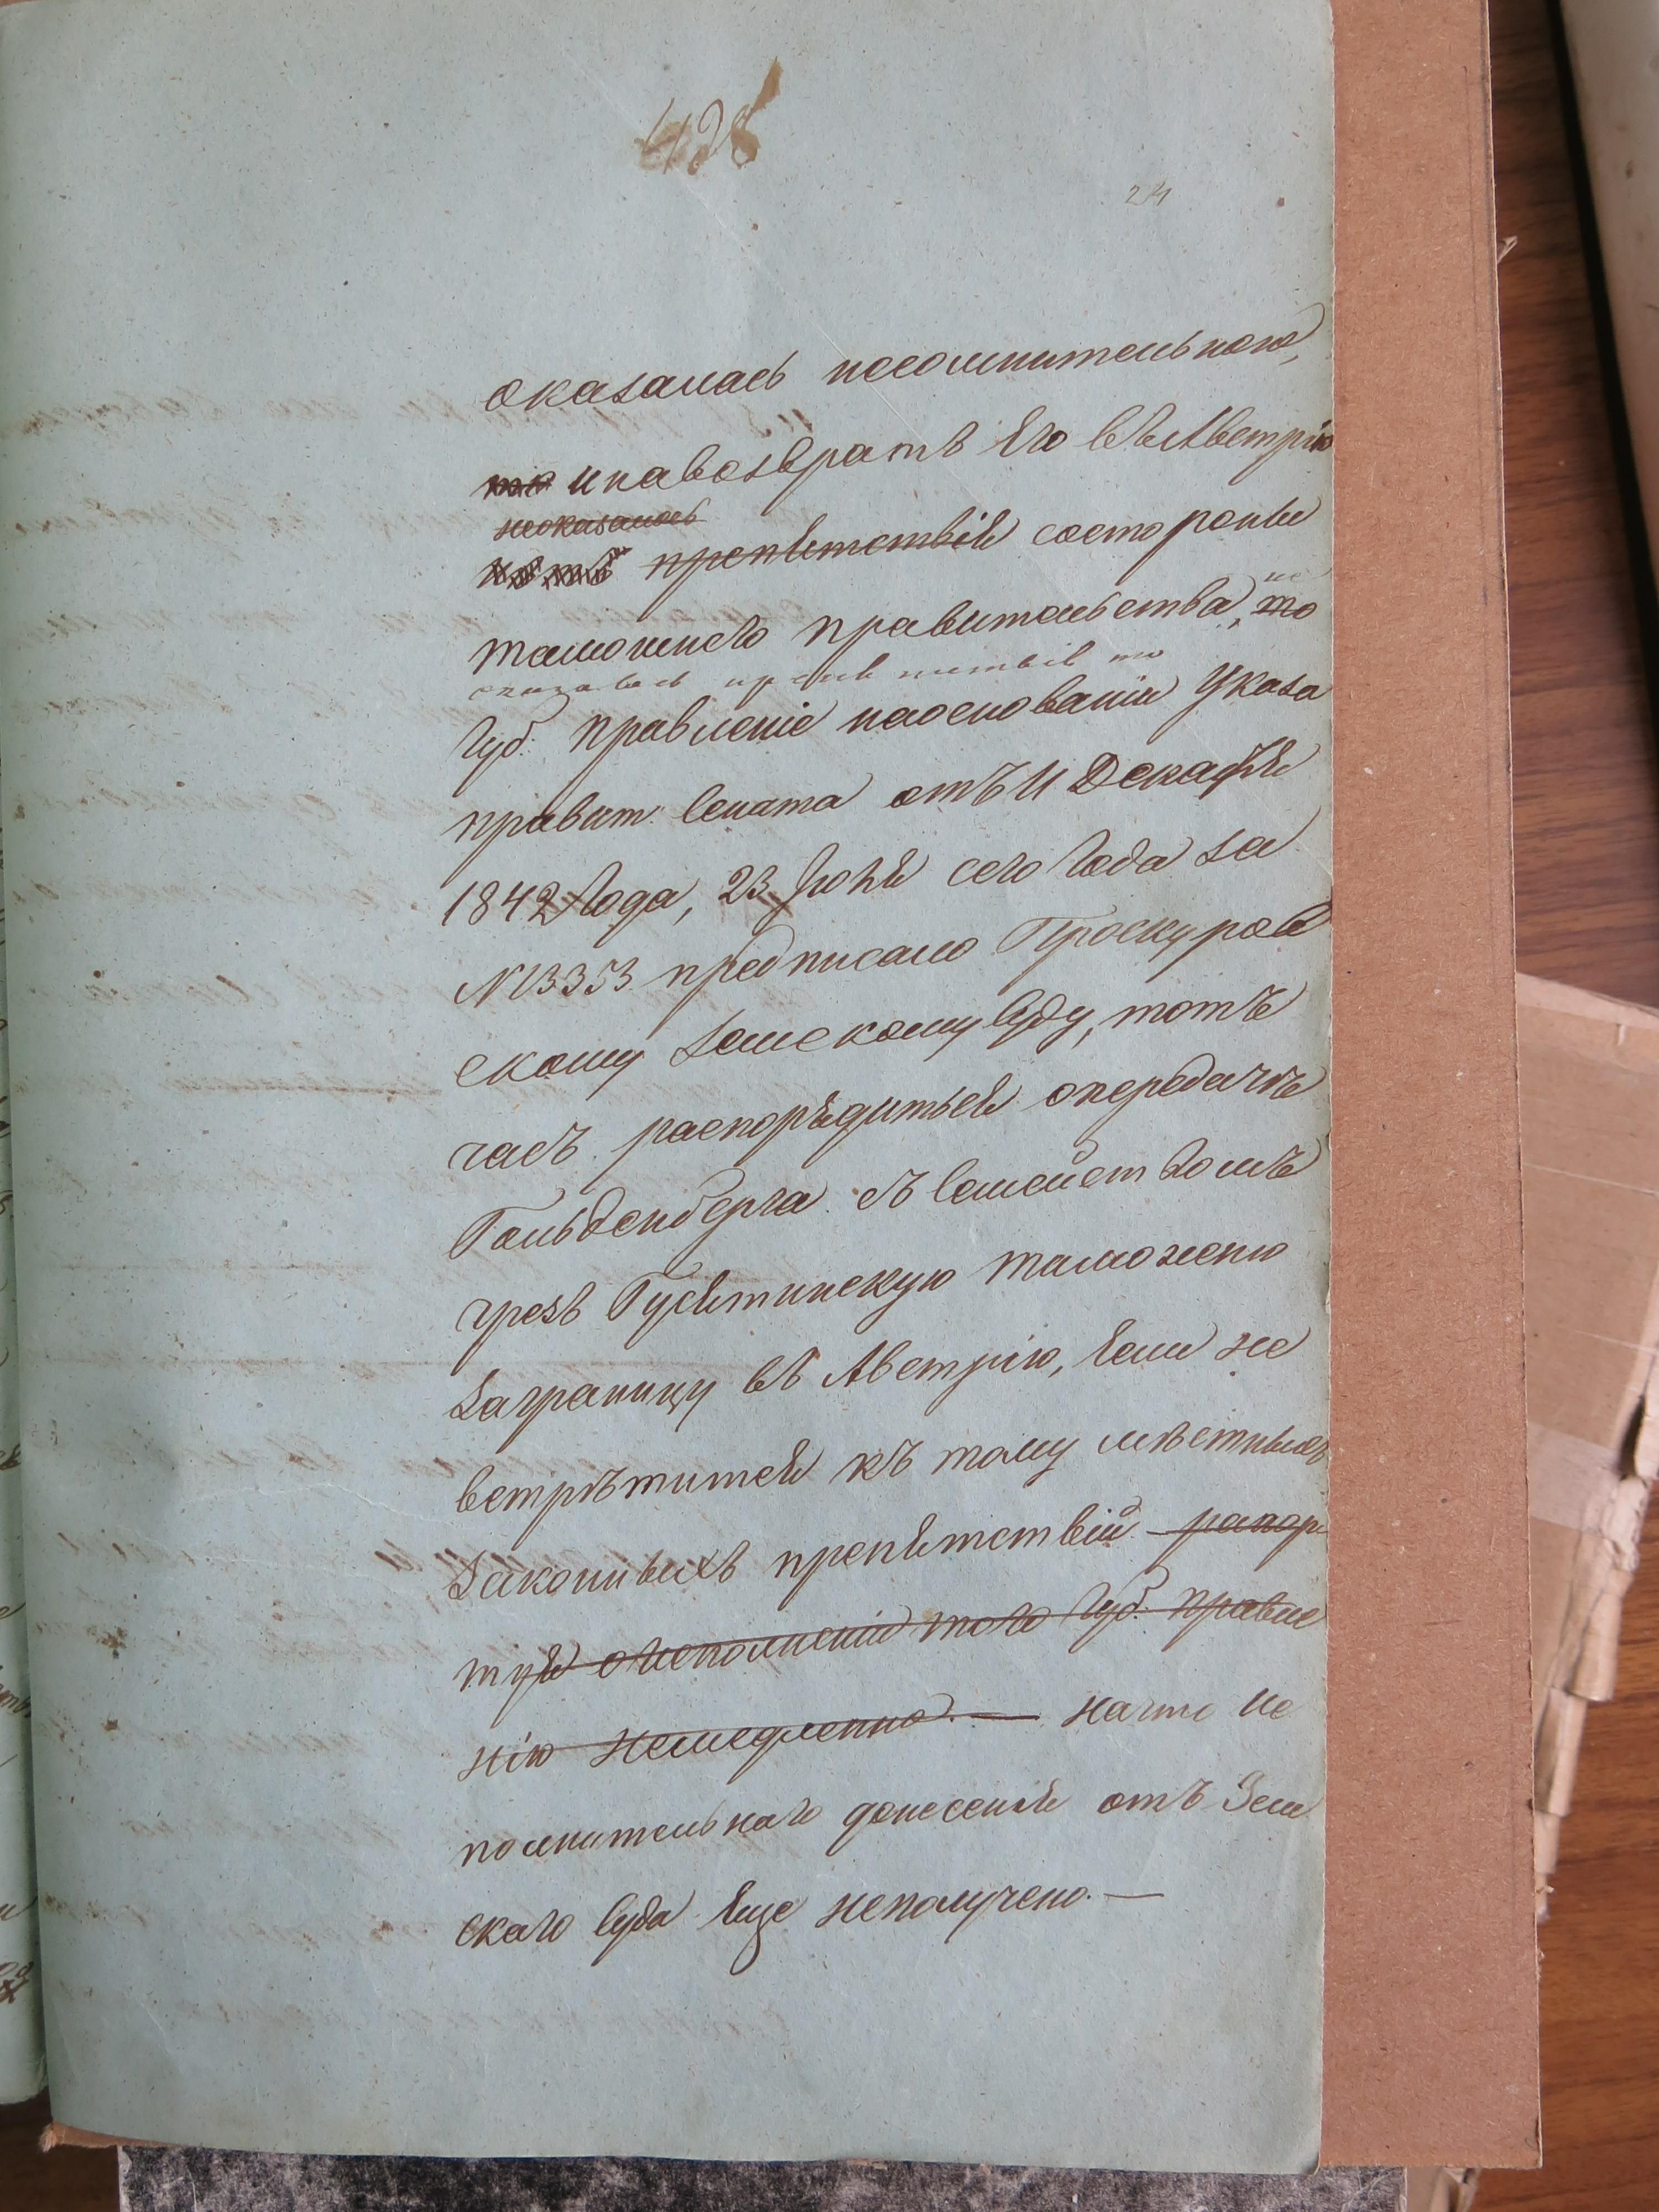 428
24
оказалась несомнительною,
то и на возвратъ Его въ Австрію
неоказалось
препятствія состороны
тамошнего правительства, то не
оказалось препятствія то
Губ. Правленіе наосновании Указа
правит. Сената отъ 11 Декабря
1842 Года, 23 Іюня сего Года за
N 13353 предписало Проскуров
скому Земскому Суду, тотъ
часъ распорядиться опередачѣ
Гольденберга съ Семействомъ
чрезъ Гусятинскую таможню
Заграницу въ Австрію, Если не
встрѣтится къ тому мѣстныхъ
Законныхъ препятствій рапор
туя о исполненіи того Губ. Правле
нію немедленно. — на что ис
полнительнаго донесенія отъ Зем
скаго Суда Еще неполучено. —